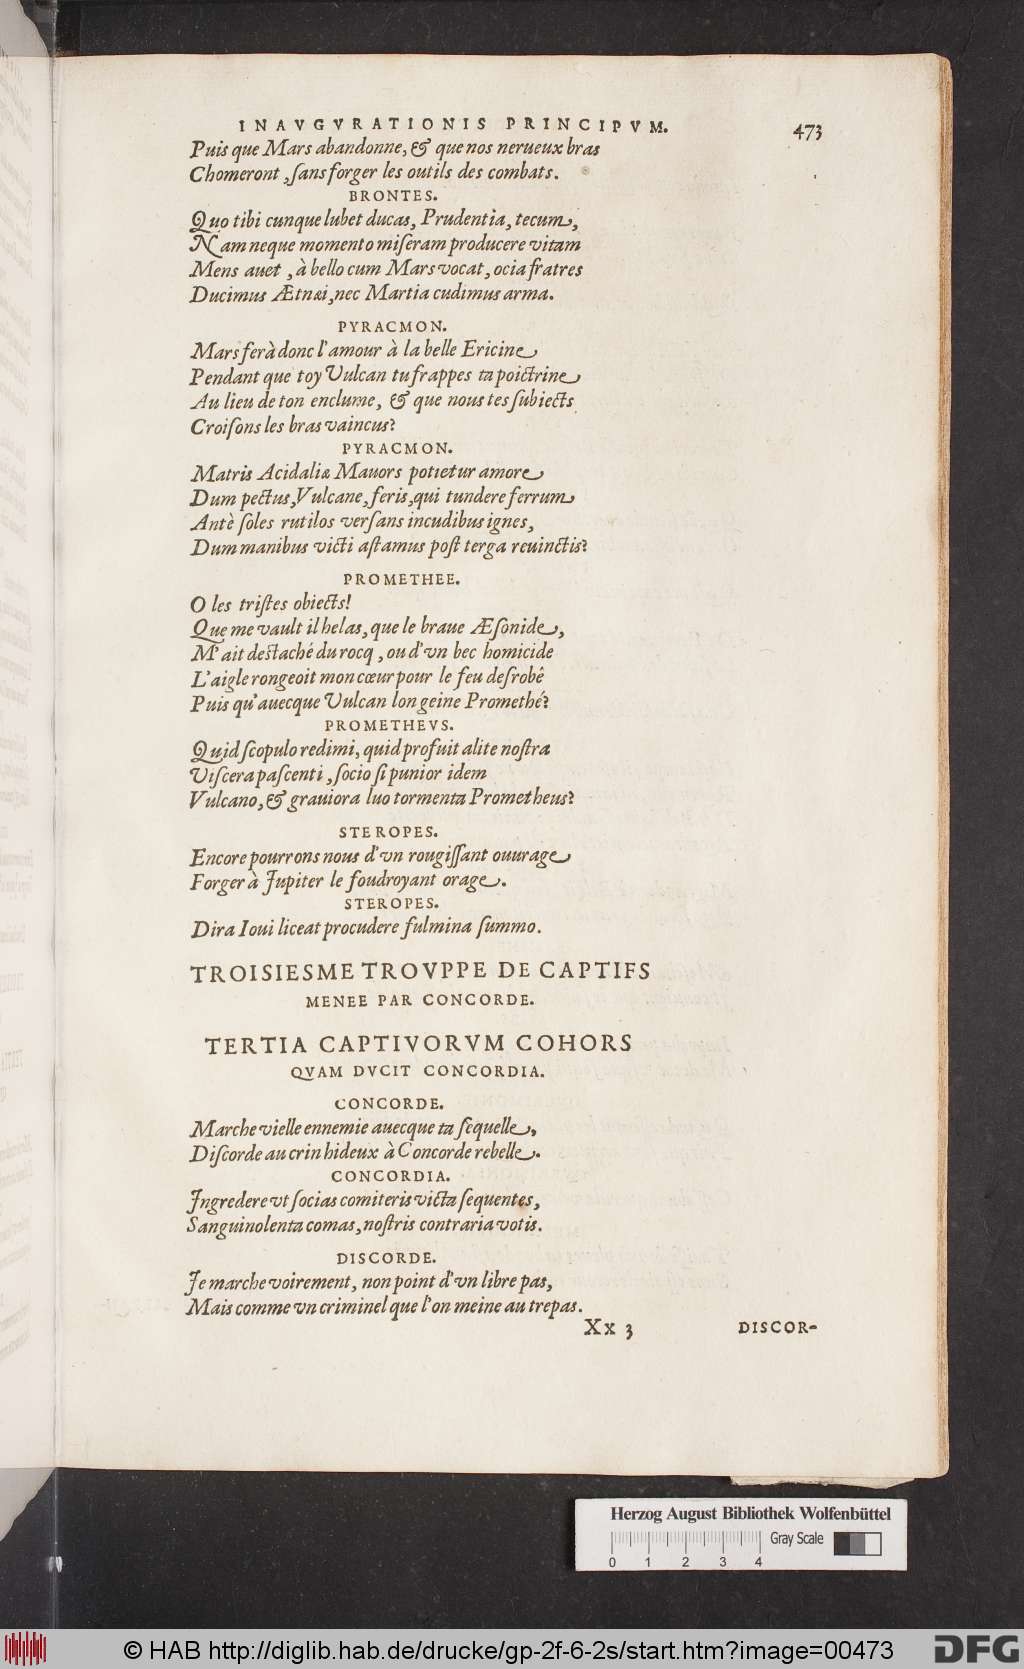 INAVGVRATIONIS PRINCIPVM. 473
Puis que Mars abandonne, & que nos nerueux bras
Chomeront, ſans forger les outils des combats.
BRONTES.
Quo tibi cunque lubet ducas, Prudentia, tecum,
Nam neque momento miſeram producere vitam
Mens auet, à bello cum Mars vocat, ocia fratres
Ducimus Ætnæi, nec Martia cudimus arma.
PYRACMON.
Mars ferà donc l'amour à la belle Ericine
Pendant que toy Vulcan tu frappes ta poictrine
Au lieu de ton enclume, & que nous tes ſubiects
Croiſons les bras vaincus?
PYRACMON.
Matris Acidaliæ Mauors potietur amore
Dum pectus, Vulcane, feris, qui tundere ferrum
Antè ſoles rutilos verſans incudibus ignes,
Dum manibus victi aſtamus poſt terga reuinctis?
PROMETHEE.
O les triſtes obiects!
Que me vault il helas, que le braue Æſonide,
M'ait deſtaché du rocq, ou d'vn bec homicide
L'aigle rongeoit mon cœur pour le feu deſrobê
Puis qu'auecque Vulcan lon geine Promethé?
PROMETHEVS.
Quid ſcopulo redimi, quid profuit alite noſtra
Viſcera paſcenti, ſocio ſi punior idem
Vulcano, & grauiora luo tormenta Prometheus?
STEROPES.
Encore pourrons nous d'vn rougiſſant ouurage
Forger à Jupiter le foudroyant orage.
STEROPES.
Dira Ioui liceat procudere fulmina ſummo.
TROISIESME TROVPPE DE CAPTIFS
MENEE PAR CONCORDE.
TERTIA CAPTIVORVM COHORS
QVAM DVCIT CONCORDIA.
CONCORDE.
Marche vielle ennemie auecque ta ſequelle,
Diſcorde au crin hideux à Concorde rebelle.
CONCORDIA.
Jngredere vt ſocias comiteris victa ſequentes,
Sanguinolenta comas, noſtris contraria votis.
DISCORDE.
Je marche voirement, non point d'vn libre pas,
Mais comme vn criminel que l'on meine au trepas.
Xx 3 DISCOR-
Herzog August Bibliothek Wolfenbüttel
Gray Scale
0 1 2 3 4
© HAB http://diglib.hab.de/drucke/gp-2f-6-2s/start.htm?image=00473
DFG